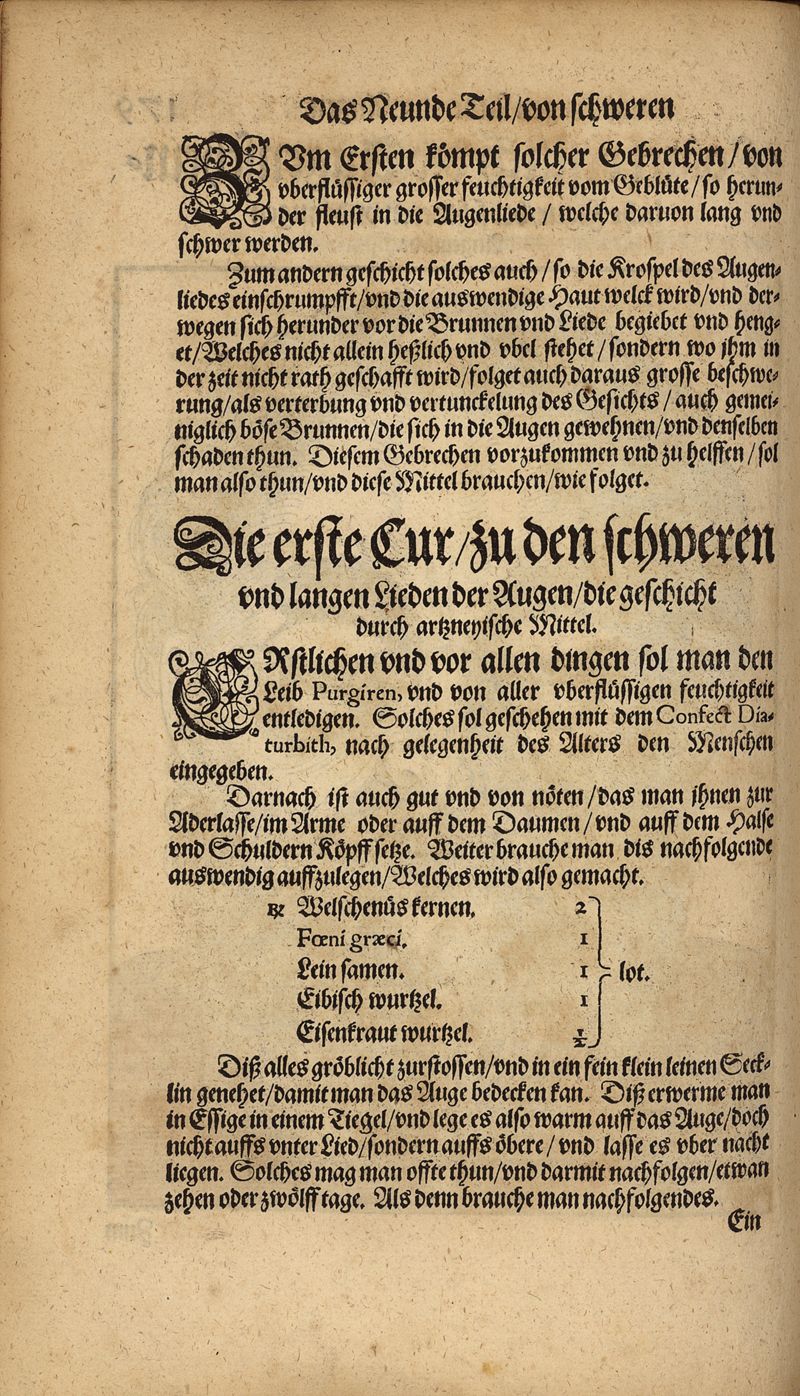 Das Neunde Teil/von schweren
ZVm Ersten kömpt solcher Gebrechen/von
vberflüssiger grosser feuchtigkeit vom Geblüte/so herun-
der fleust in die Augenliede/welche daruon lang vnd
schwer werden.
Zum andern geschicht solches auch/so die Krospel des Augen-
liedes einschrumpfft/vnd die auswendige Haut welck wird/vnd der-
wegen sich herunder vor die Brunnen vnd Liede begiebet vnd heng-
et/Welches nicht allein heßlich vnd vbel stehet/sondern wo jhm in
der zeit nicht rath geschafft wird/folget auch daraus grosse beschwe-
rung/als verterbung vnd vertunckelung des Gesichts/auch gemei-
niglich böse Brunnen/die sich in die Augen gewehnen/vnd denselben
schaden thun. Diesem Gebrechen vorzukommen vnd zu helffen/sol
man also thun/vnd diese Mittel brauchen/wie folget.
Die erste Cur/zu den schweren
vnd langen Lieden der Augen/die geschicht
durch artzneyische Mittel.
ERstlichen vnd vor allen dingen sol man den
Leib Purgiren, vnd von aller vberflüssigen feuchtigkeit
entledigen. Solches sol geschehen mit dem Confect Dia-
turbith, nach gelegenheit des Alters den Menschen
eingegeben.
Darnach ist auch gut vnd von nöten/das man jhnen zur
Aderlasse/im Arme oder auff dem Daumen/vnd auff dem Halse
vnd Schuldern Köpff setze. Weiter brauche man dis nachfolgende
auswendig auffzulegen/Welches wird also gemacht.
℞ Welschenüs kernen. 2
Fœni græci. 1
Lein samen. 1 lot.
Eibisch wurtzel. 1
Eisenkraut wurtzel. ½
Diß alles gröblicht zurstossen/vnd in ein fein klein leinen Seck-
lin genehet/damit man das Auge bedecken kan. Diß erwerme man
in Essige in einem Tiegel/vnd lege es also warm auff das Auge/doch
nicht auffs vnter Lied/sondern auffs öbere/vnd lasse es vber nacht
liegen. Solches mag man offte thun/vnd darmit nachfolgen/etwan
zehen oder zwölff tage. Als denn brauche man nachfolgendes.
Ein